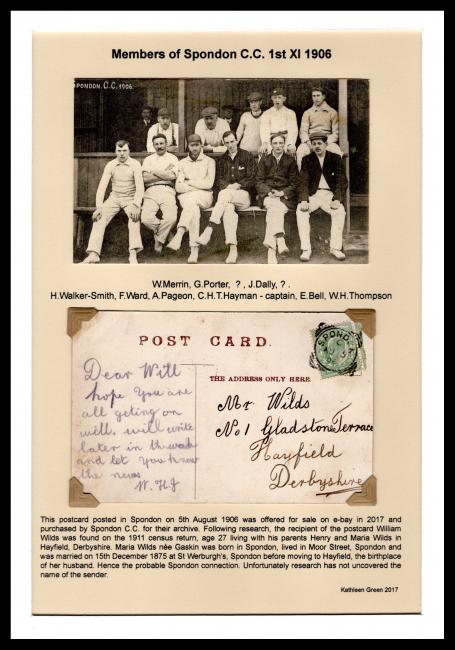 Members of Spondon C.C. 1st XI 1906
SPONDON. C.C. 1906.
W.Merrin, G.Porter, ?, J.Dally, ? .
H.Walker-Smith, F.Ward, A.Pageon, C.H.T.Hayman - captain, E.Bell, W.H.Thompson
POST CARD.
THE ADDRESS ONLY HERE.
SPOND
Dear Will
hope you are
all geting on
will. will write
later in the week
and let you know
the news
W. HJ
Mr Wilds
No 1 Gladstone Terrace
Hayfield
Derbyshire
This postcard posted in Spondon on 5th August 1906 was offered for sale on e-bay in 2017 and
purchased by Spondon C.C. for their archive. Following research, the recipient of the postcard William
Wilds was found on the 1911 census return, age 27 living with his parents Henry and Maria Wilds in
Hayfield, Derbyshire. Maria Wilds née Gaskin was born in Spondon, lived in Moor Street, Spondon and
was married on 15th December 1875 at St Werburgh's, Spondon before moving to Hayfield, the birthplace
of her husband. Hence the probable Spondon connection. Unfortunately research has not uncovered the
name of the sender.
Kathleen Green 2017